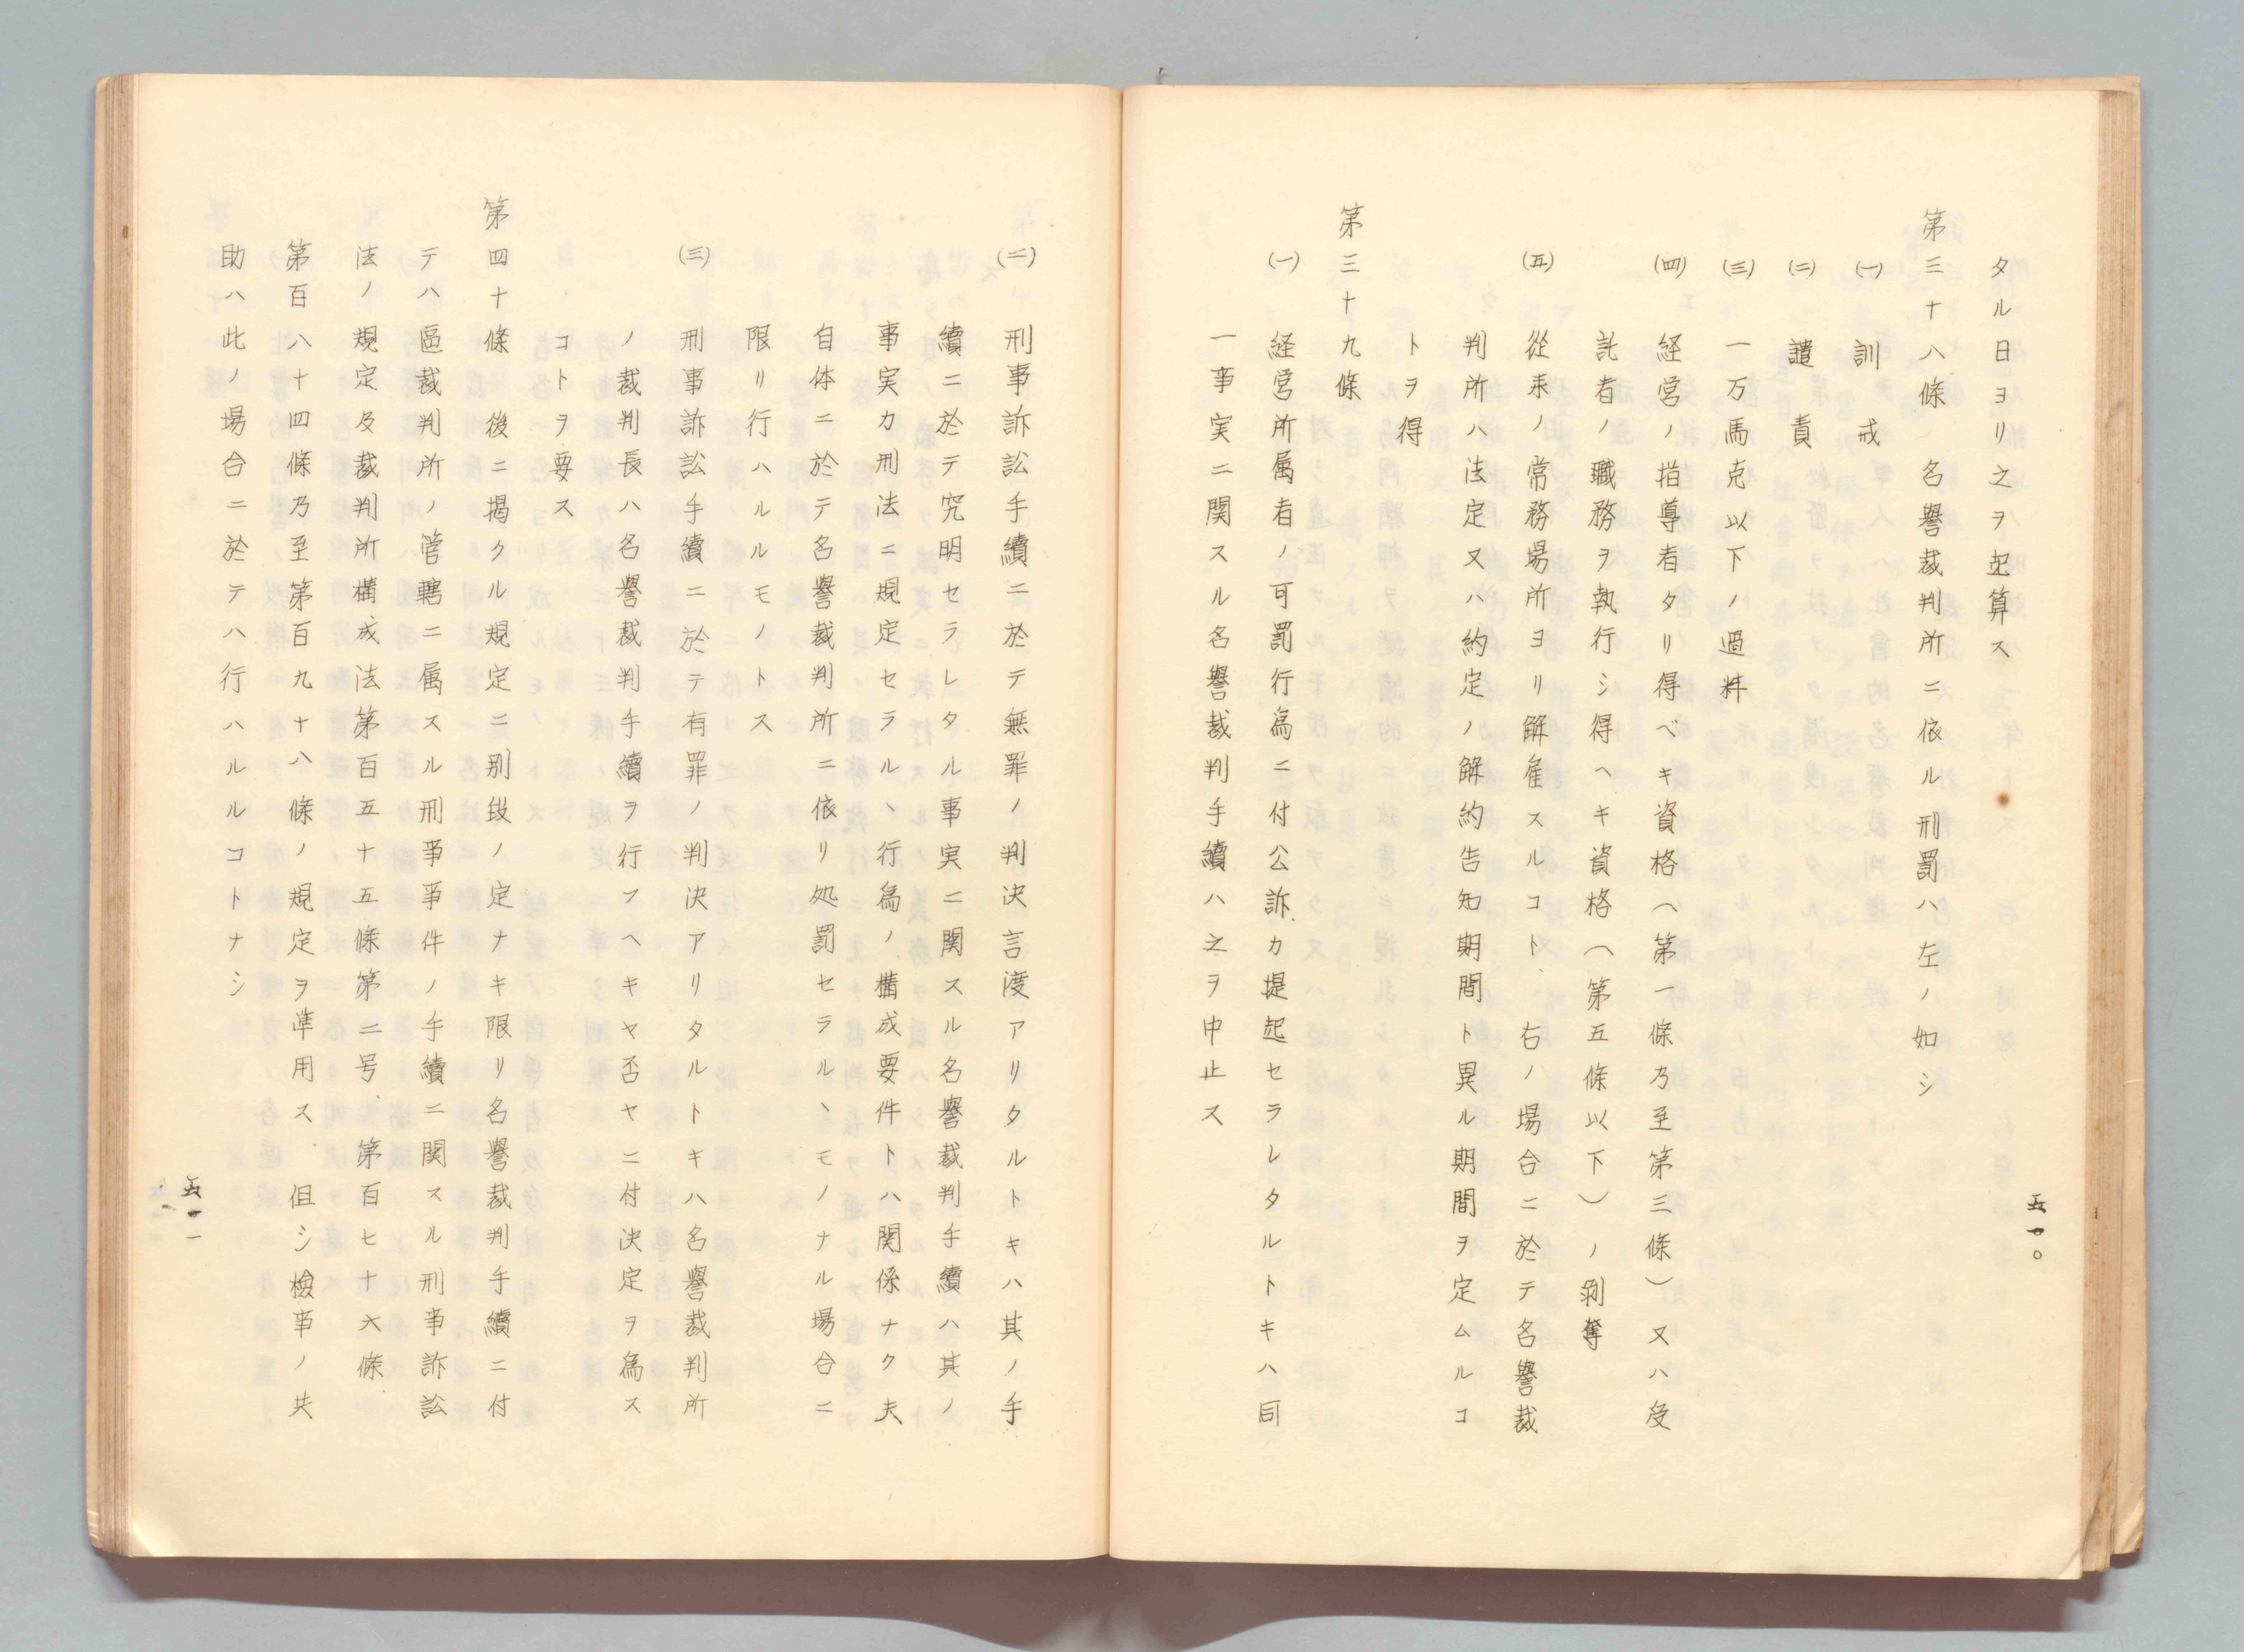 タル日ヨリ之ヲ起算ス
第三十八條 名譽裁判所ニ依ル刑罰ハ左ノ如シ
(一) 訓戒
(二) 譴責
(三) 一万馬克以下ノ過料
(四) 経営ノ指導者タリ得ベキ資格(第一條乃至第三條)又ハ受
託者ノ職務ヲ執行シ得ヘキ資格(第五條以下)ノ剥奪
(五) 從来ノ常務場所ヨリ解雇スルコト、右ノ場合ニ於テ名譽裁
判所ハ法定又ハ約定ノ解約告知期間ト異ル期間ヲ定ムルコ
トヲ得
第三十九條
(一) 経営所属者ノ可罰行為ニ付公訴カ提起セラレタルトキハ同
一事実ニ関スル名譽裁判手續ハ之ヲ中止ス
五一〇
(二) 刑事訴訟手續ニ於テ無罪ノ判決言渡アリタルトキハ其ノ手
續ニ於テ究明セラレタル事実ニ関スル名譽裁判手續ハ其ノ
事実カ刑法ニ規定セラルヽ行為ノ構成要件トハ関係ナク夫
自体ニ於テ名譽裁判所ニ依リ処罰セラルヽモノナル場合ニ
限リ行ハルルモノトス
(三) 刑事訴訟手續ニ於テ有罪ノ判決アリタルトキハ名譽裁判所
ノ裁判長ハ名譽裁判手續ヲ行フヘキヤ否ヤニ付決定ヲ為ス
コトヲ要ス
第四十條 後ニ掲クル規定ニ別段ノ定ナキ限リ名譽裁判手續ニ付
テハ區裁判所ノ管轄ニ属スル刑事事件ノ手續ニ関スル刑事訴訟
法ノ規定及裁判所構成法第百五十五條第二号、第百七十六條、
第百八十四條乃至第百九十八條ノ規定ヲ準用ス、但シ檢事ノ共
助ハ此ノ場合ニ於テハ行ハルルコトナシ
五一一